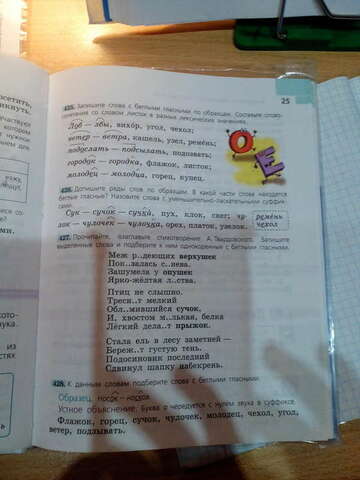 25
425. Запишите слова с беглыми гласными по образцу. Составьте слово-
сочетания со словом листок в разных лексических значениях.
Лоб — лбы, вихор, угол, чехол;
ветер — ветра, кашель, узел, ремень;
подослать — подсылать, подпевать;
городок — городка, флажок, листок;
молодец — молодца, горец, купец.
О
Е
426. Допишите ряды слов по образцам. В какой части слова находятся
беглые гласные? Назовите слова с уменьшительно-ласкательными суффик-
сами.
Сук — сучок — сучки, пух, клок, снег; чу-
лок — чулочек — чулочка, орех, платок, узелок.
ремень
чехол
427. Прочитайте, озаглавьте стихотворение А. Твардовского. Запишите
выделенные слова и подберите к ним однокоренные с беглыми гласными.
Меж р..деющих верхушек
Пок..залась с..нева.
Зашумела у опушек
Ярко-жёлтая л..ства.
Птиц не слышно.
Тресн..т мелкий
Обл..мившийся сучок,
И, хвостом м..лькая, белка
Лёгкий дела..т прыжок.
Стала ель в лесу заметней —
Береж..т густую тень.
Подосиновик последний
Сдвинул шапку набекрень.
428. К данным словам подберите слова с беглыми гласными.
Образец. Носок — носка.
Устное объяснение. Буква о чередуется с нулём звука в суффиксе.
Флажок, горец, сучок, чулочек, молодец, чехол, угол,
ветер, подзывать.